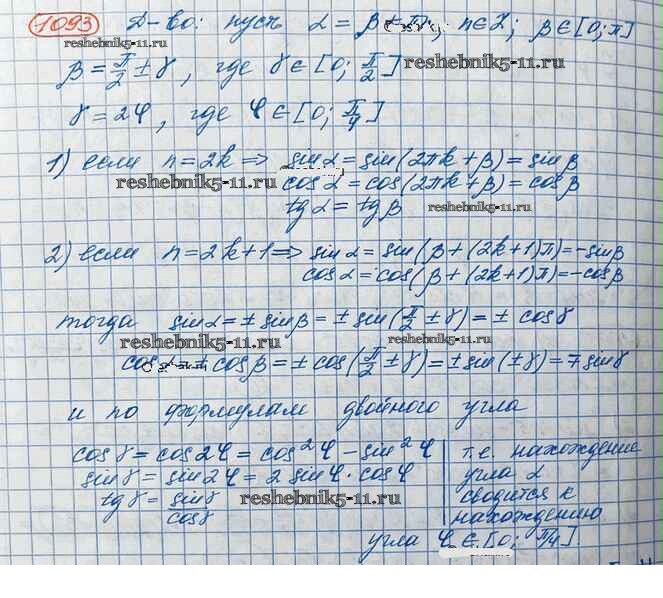 1093 Д-во: пусть α = β + πn, n∈Z; β∈[0; π]
reshebnik5-11.ru
β = π/2 ± γ, где γ∈[0; π/2]
reshebnik5-11.ru
γ = 2φ, где φ∈[0; π/4]
1) если n=2k ⇒ sin α = sin(2πk+β) = sin β
cos α = cos(2πk+β) = cos β
reshebnik5-11.ru
tg α = tg β
reshebnik5-11.ru
2) если n=2k+1 ⇒ sin α = sin(β+(2k+1)π) = -sin β
cos α = cos(β+(2k+1)π) = -cos β
тогда sin α = ± sin β = ± sin(π/2 ± γ) = ± cos γ
reshebnik5-11.ru
cos α = ± cos β = ± cos(π/2 ± γ) = ± sin(±γ) = ∓ sin γ
и по формулам двойного угла
cos γ = cos 2φ = cos²φ - sin²φ
sin γ = sin 2φ = 2 sin φ · cos φ
tg γ = sin γ / cos γ
reshebnik5-11.ru
т.е. нахождение
угла α
сводится к
нахождению
угла φ∈[0; π/4]